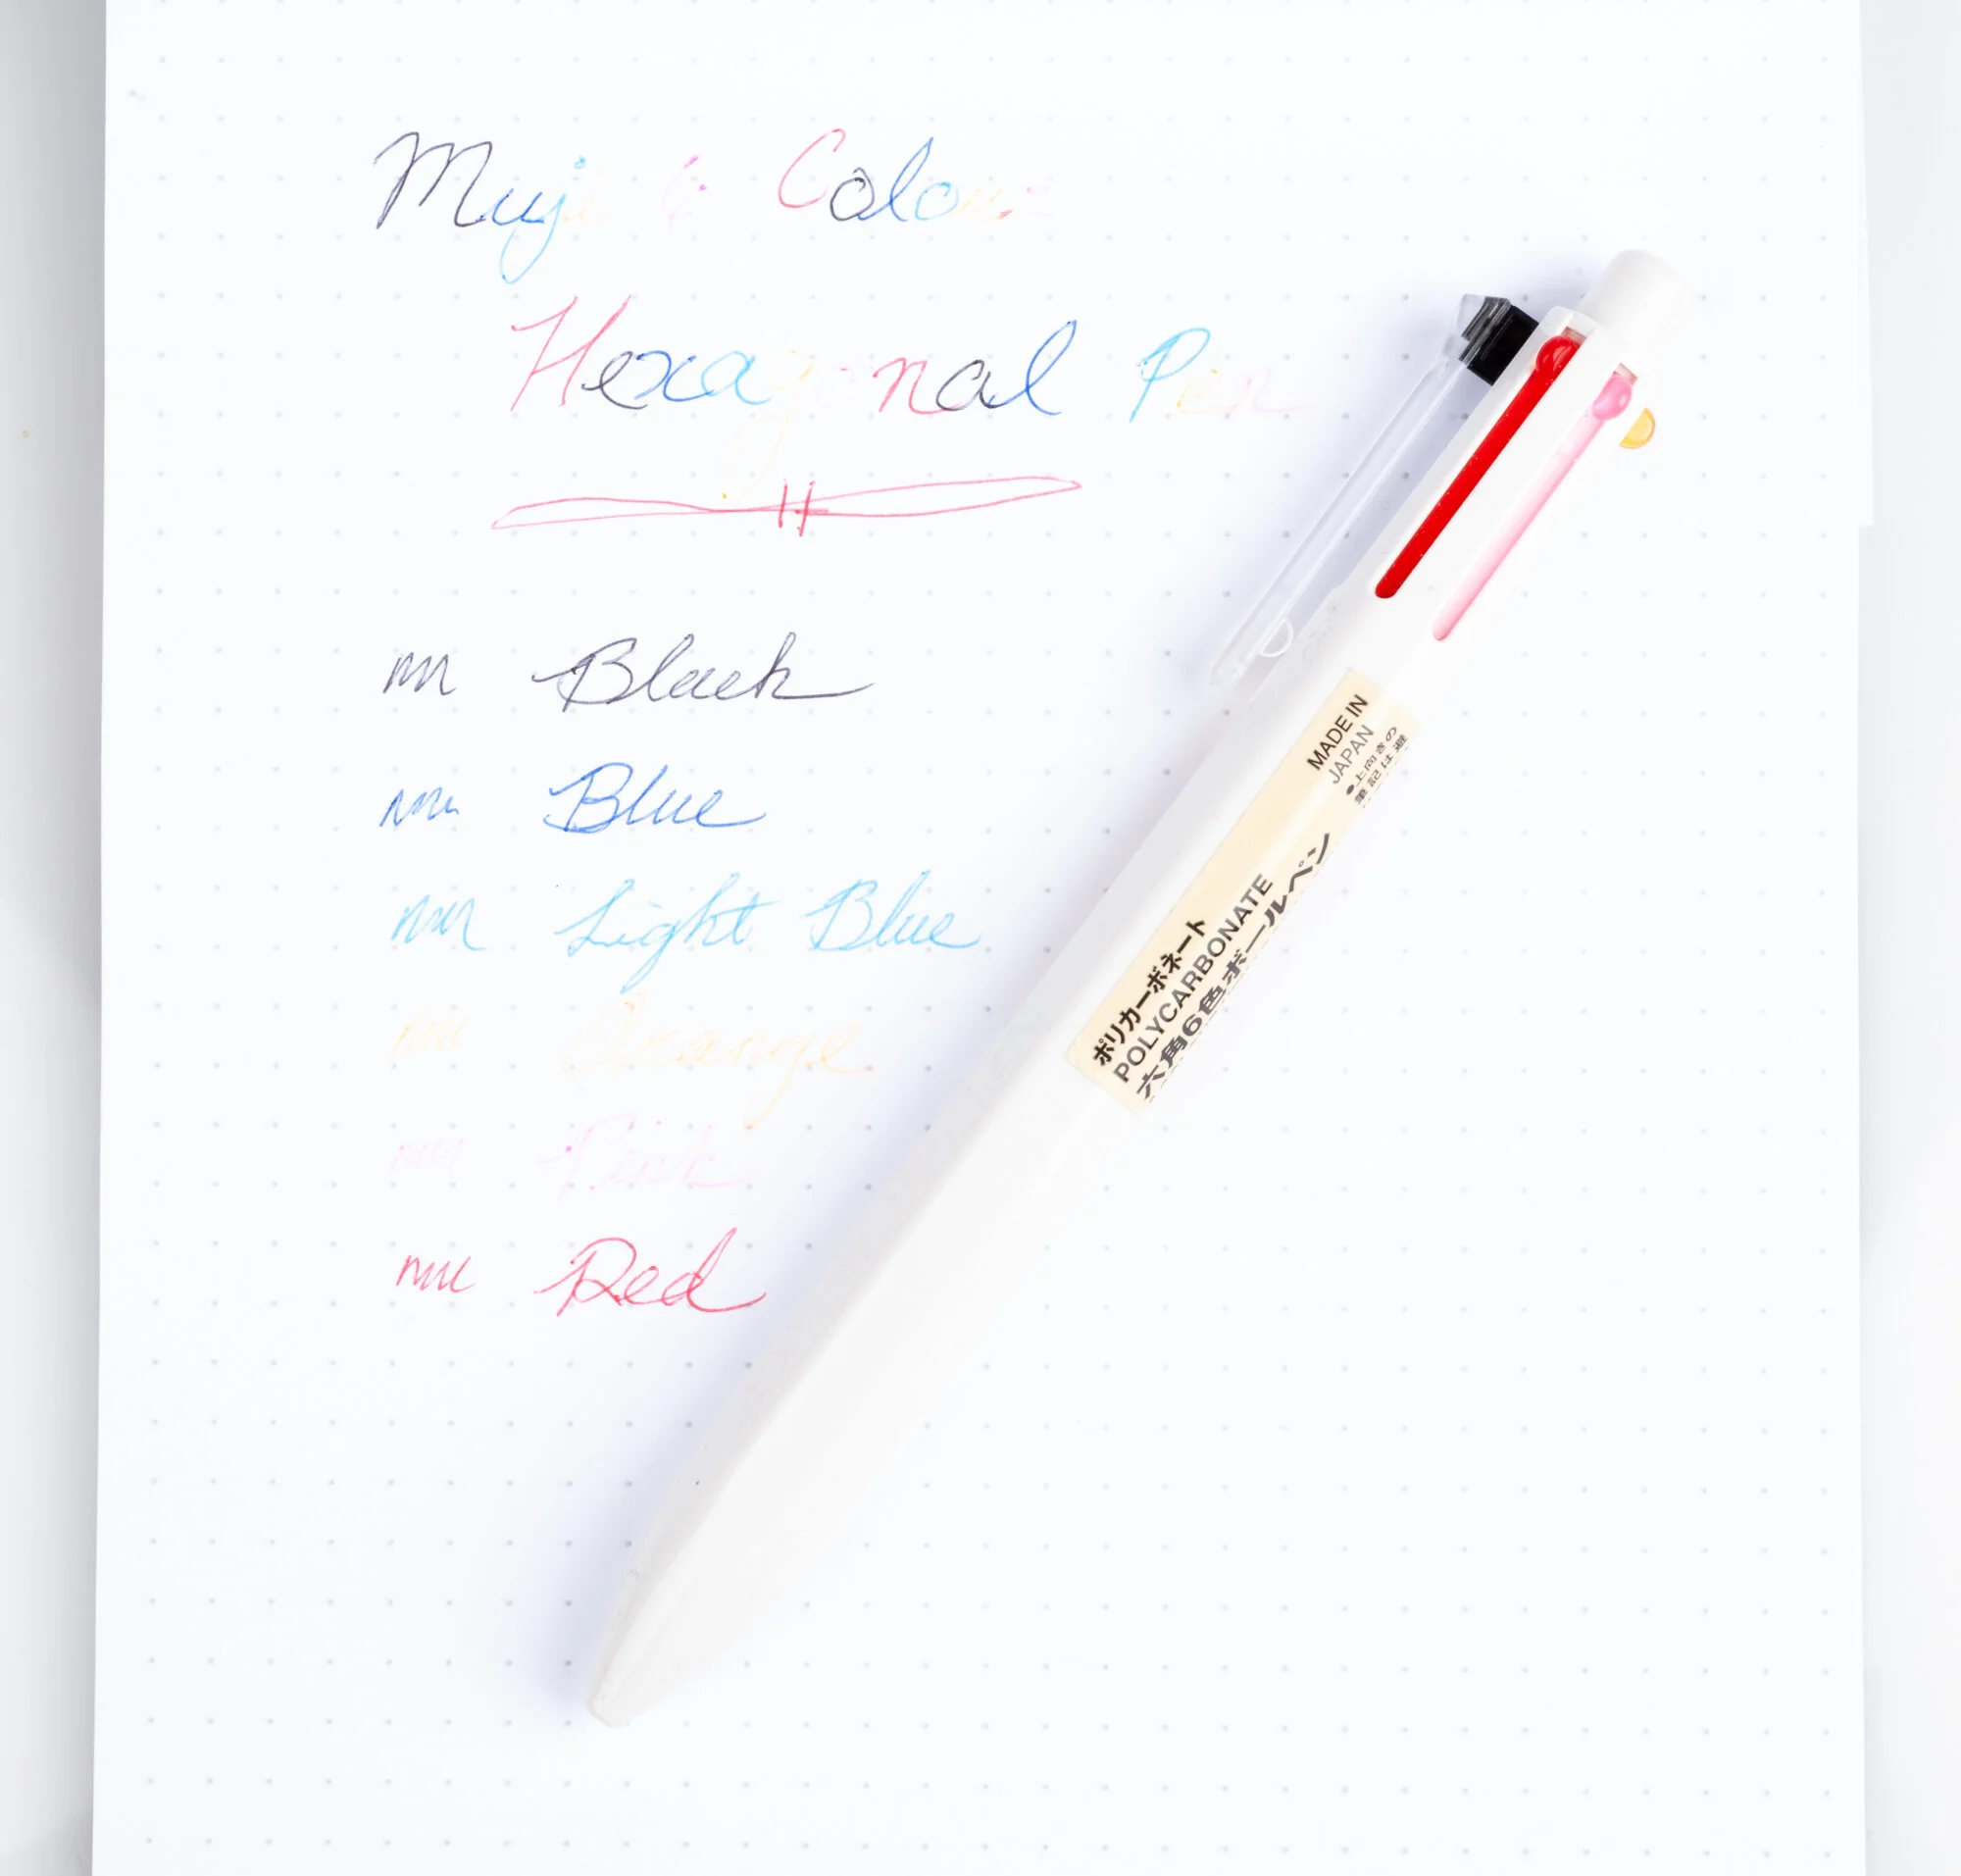 Muji 6 Colour
Hexagonal Pen
Black
Blue
Light Blue
Orange
Pink
Red
MADE IN
JAPAN
●上向きの
筆記は避
ポリカーボネート
POLYCARBONATE
六角6色ボールペン